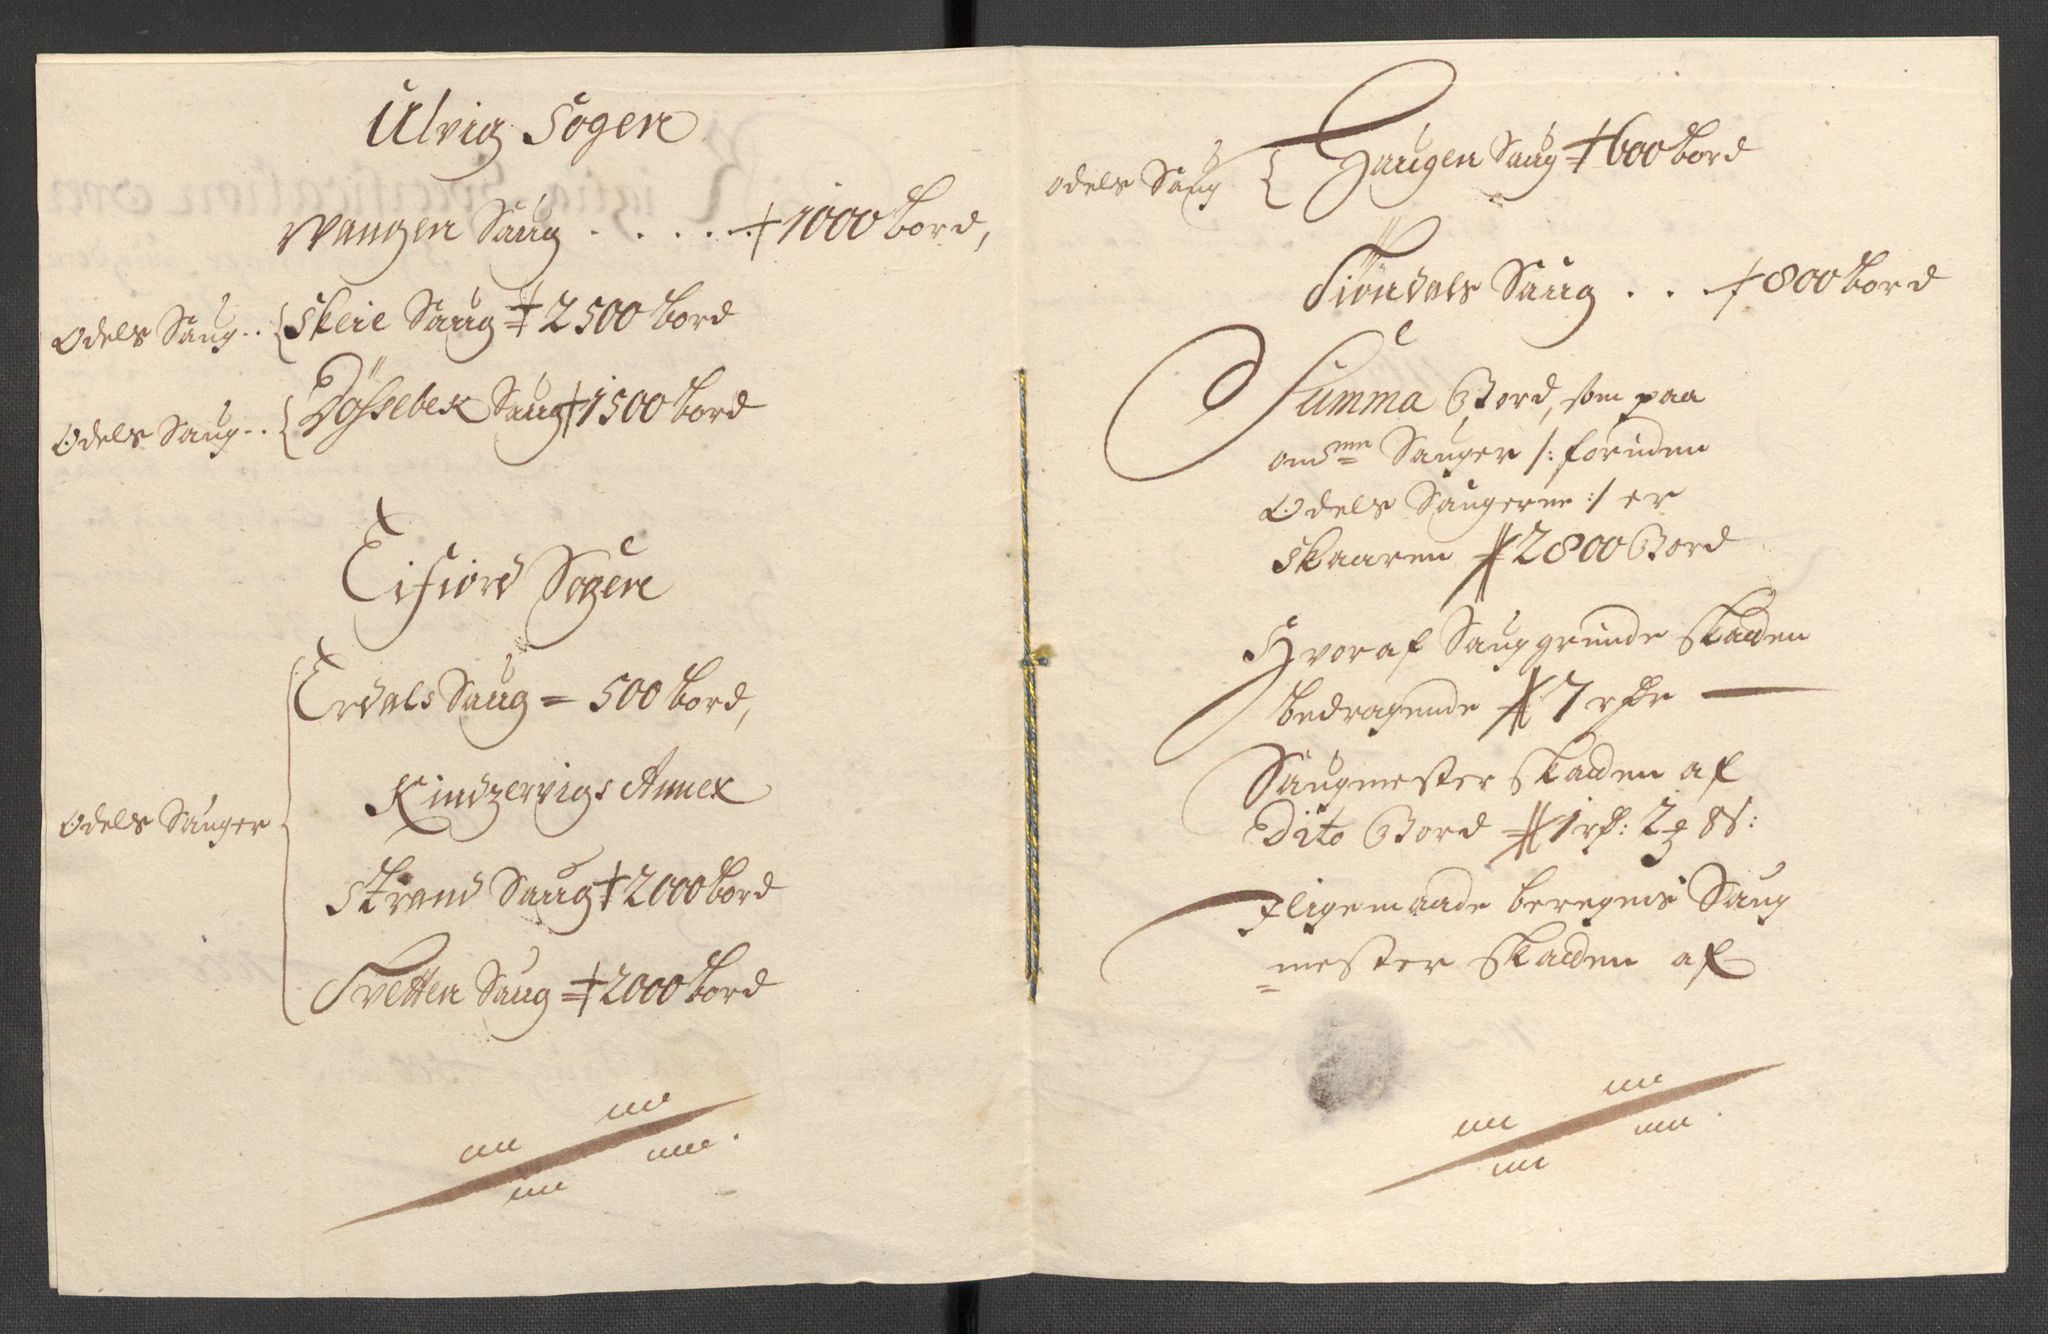 Ulvig Sogen
Wangen Saug . . . . . 1000 bord,
Odels Saug.. { Skeie Saug = 2500 bord
Odels Saug.. { Døssebek Saug 1500 bord
Eifiord Sogen
Erdals Saug = 500 bord,
Kindzervigs Annex
Odels Sauger
Strand Saug 2000 bord
Tvetten Saug = 2000 bord
Odels Saug { Haugen Saug = 600 bord
Siøndals Saug . . . 800 bord
Summa Bord, som paa
omdte Sauger /: foruden
Odels Saugerne :/ er
skaaren 2800 Bord
Hvoraf Sauggrunde skatten
bedragende 7 rdr
Saugmester skatten af
Dito Bord 1 rd: 2 8 s:
Iligemaade beregnis Saug
mester skatten af